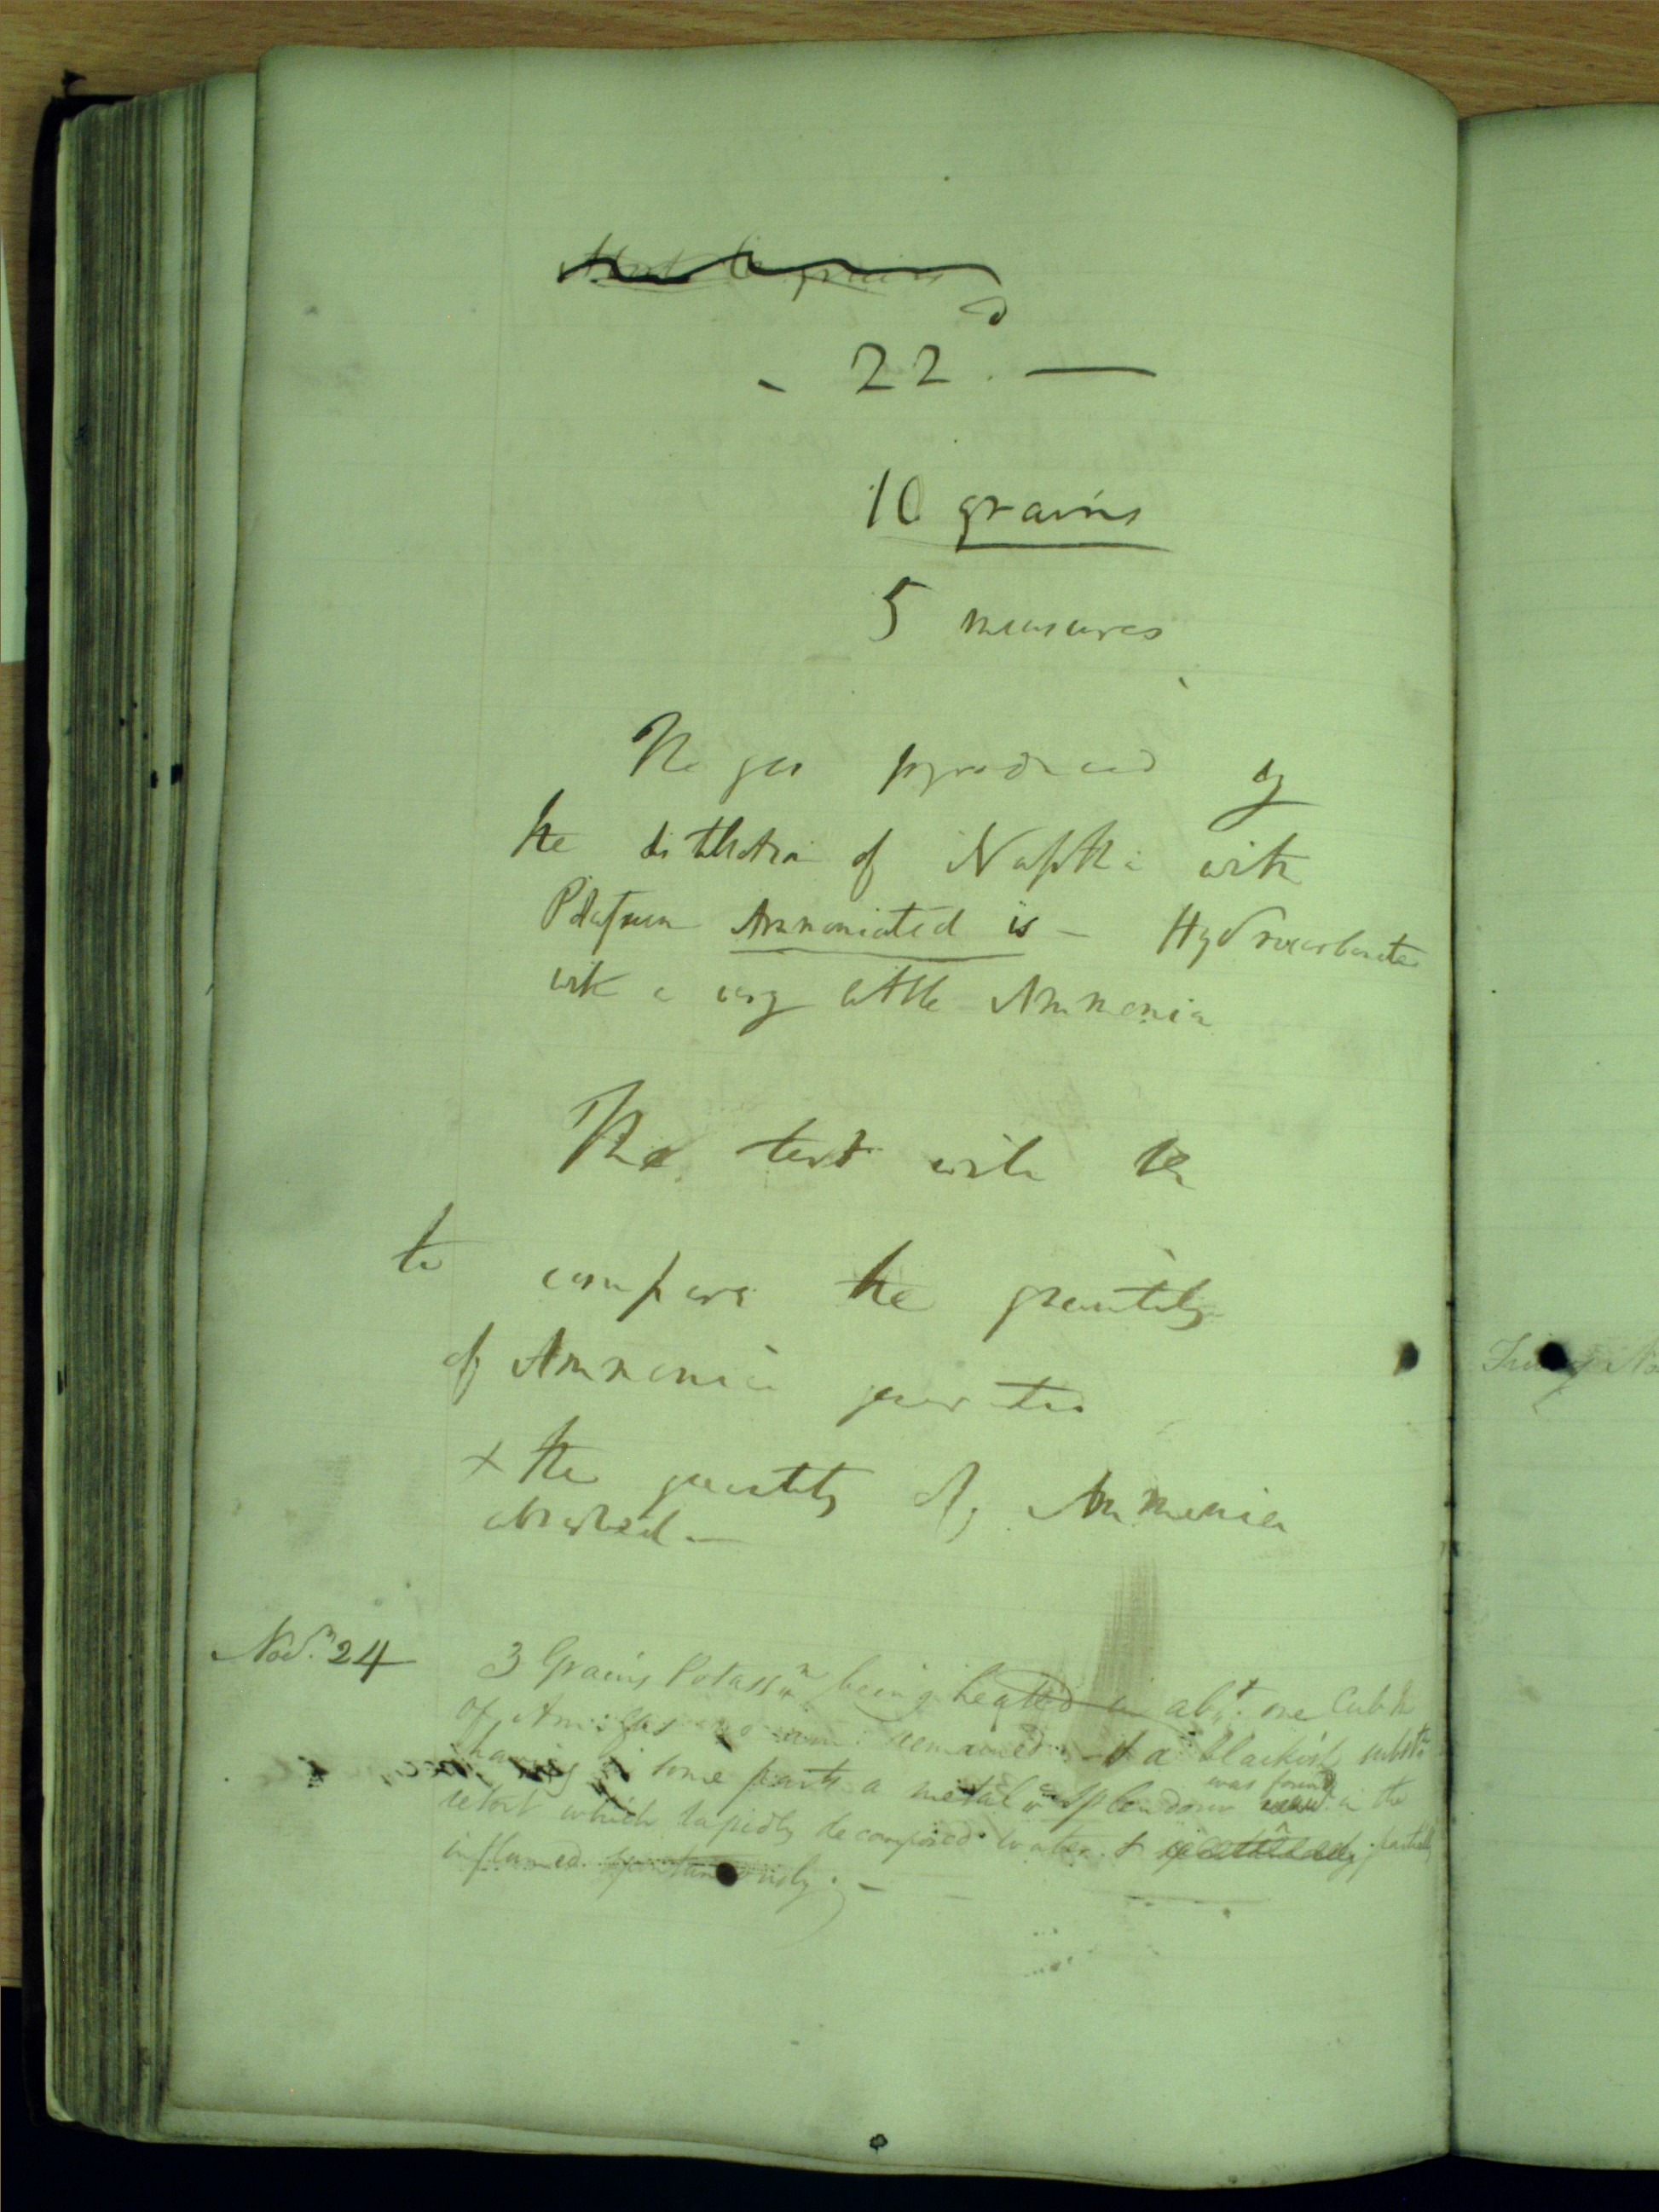 - 22. —
10 grains
5 measures
The gas produced by
the distillation of Naptha with
Potasium Ammoniated is - Hydrocarbonate
with a very little Ammonia
The test with the
to compare the quantity
of Ammonia generated
+ the quantity of Ammonia
absorbed —
Novr. 24
3 Grains Potassm being heated in abt. one Cub In
of Am: gas no remained & a blackish substce
having in some parts a metalc splendour was found in the
retort which rapidly decomposed water & partially
inflamed spontaneously. —